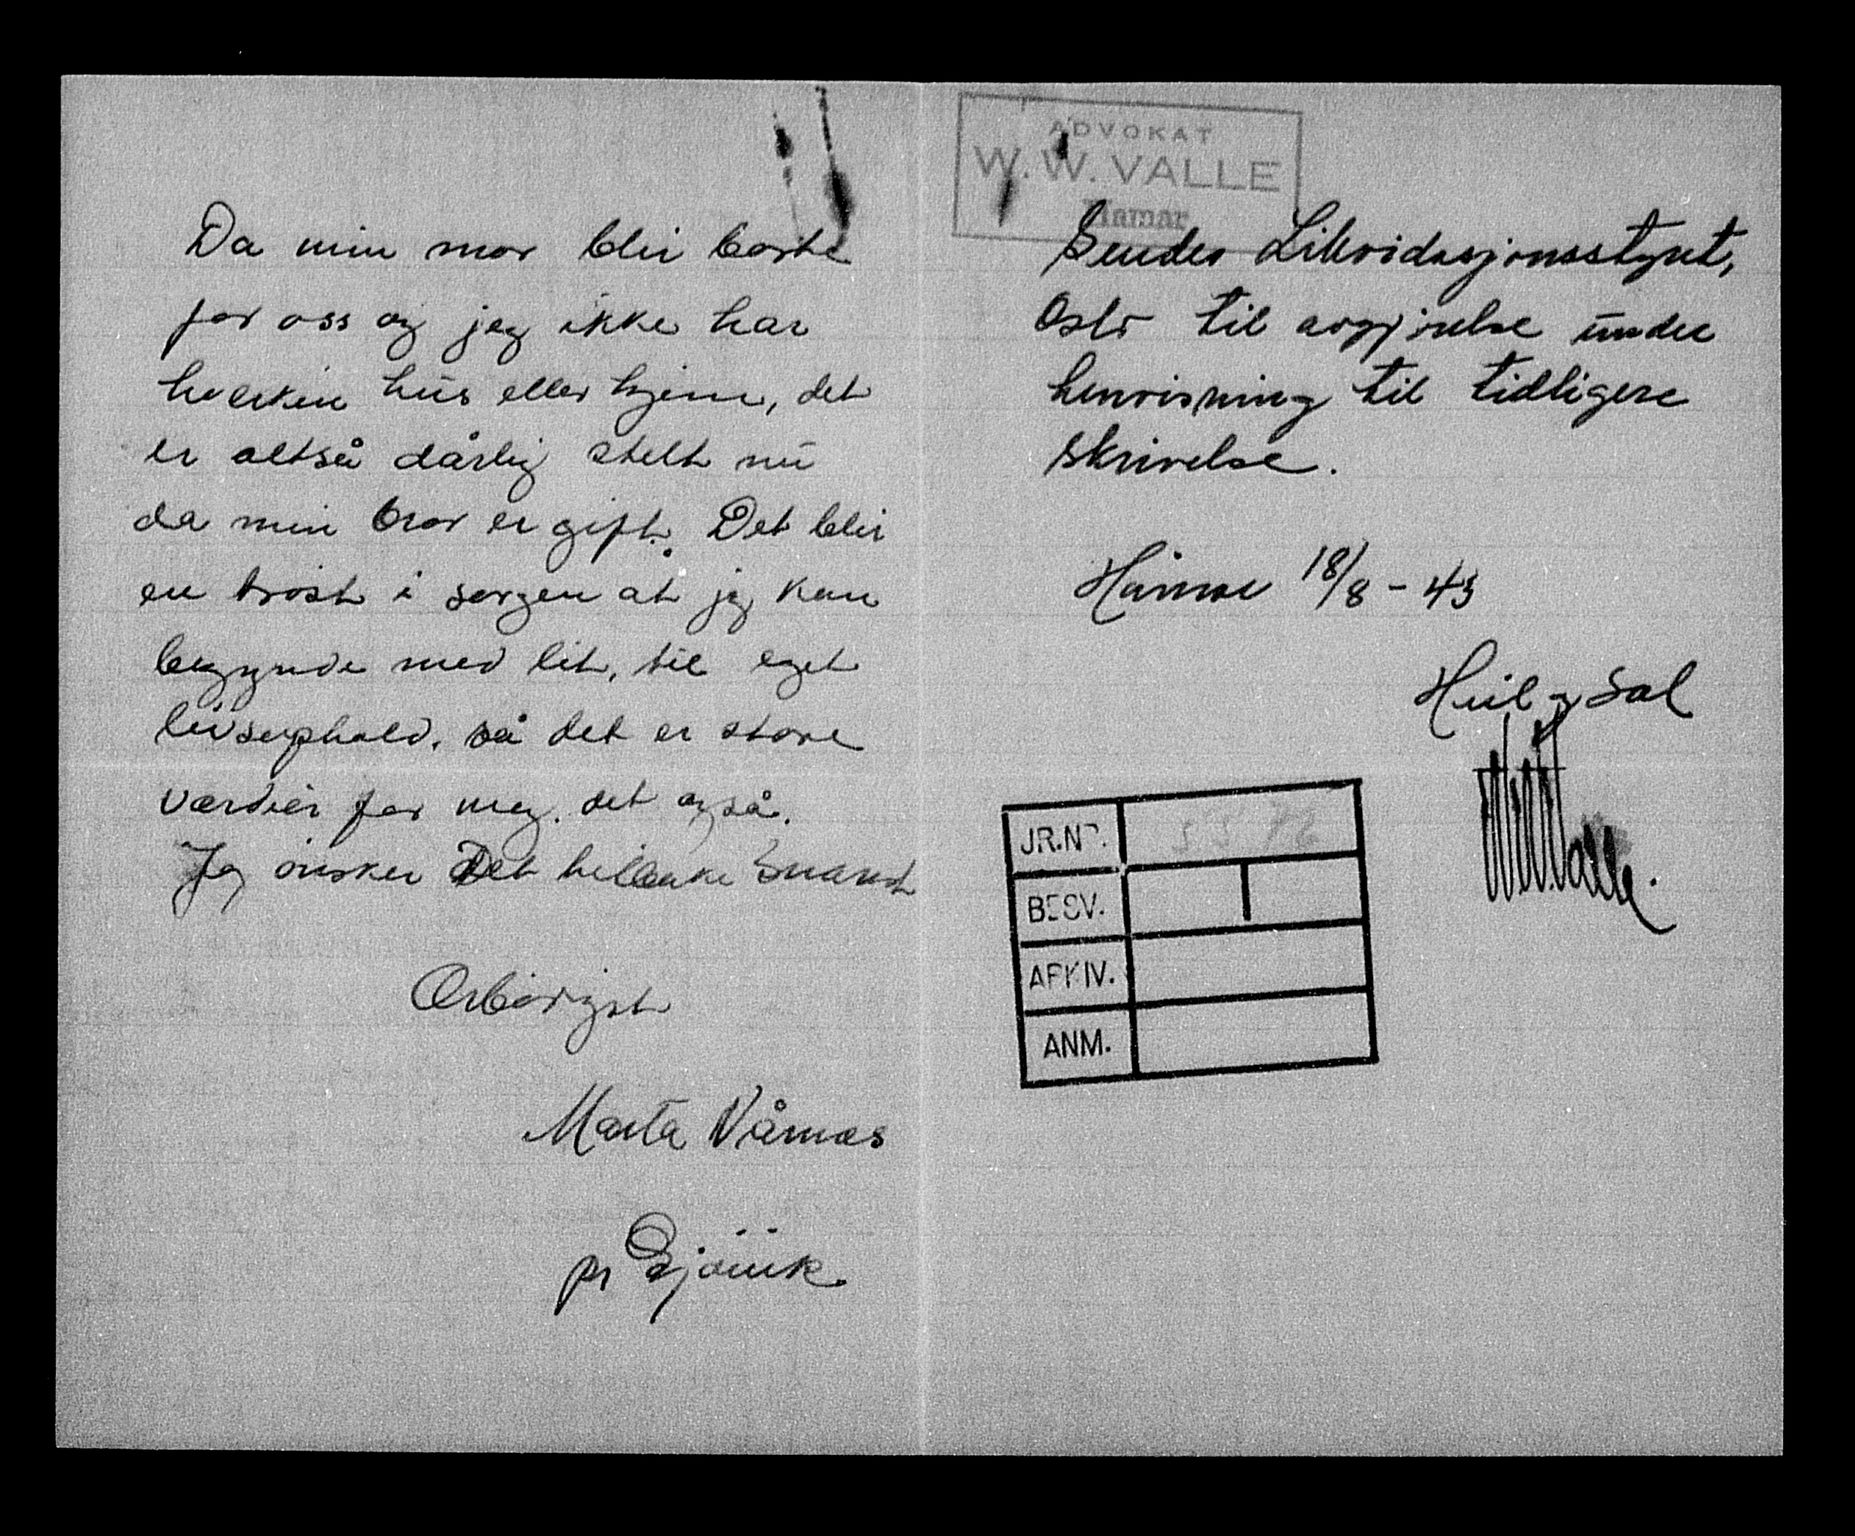 Da min mor blir borte
for oss og jeg ikke har
hverken hus eller hjem, det
er altså dårlig stelt nu
da min bror er gift. Det blir
en trøst i sorgen at jeg kan
begynde med lit, til eget
livsophold, så det er store
værdier for meg. det også.
Jeg ønsker Det snarest
Ærbørigst
Marta Vårnæs
pr Gjövik
ADVOKAT
W. W. VALLE
Hamar
Sendes Likvidasjonsstyret,
Oslo til avgjørelse under
henvisning til tidligere
skrivelse.
Hamar 18/8 - 43
Heil og Sæl
W.W. Valle.
JR.NR.
BESV.
ARKIV.
ANM.